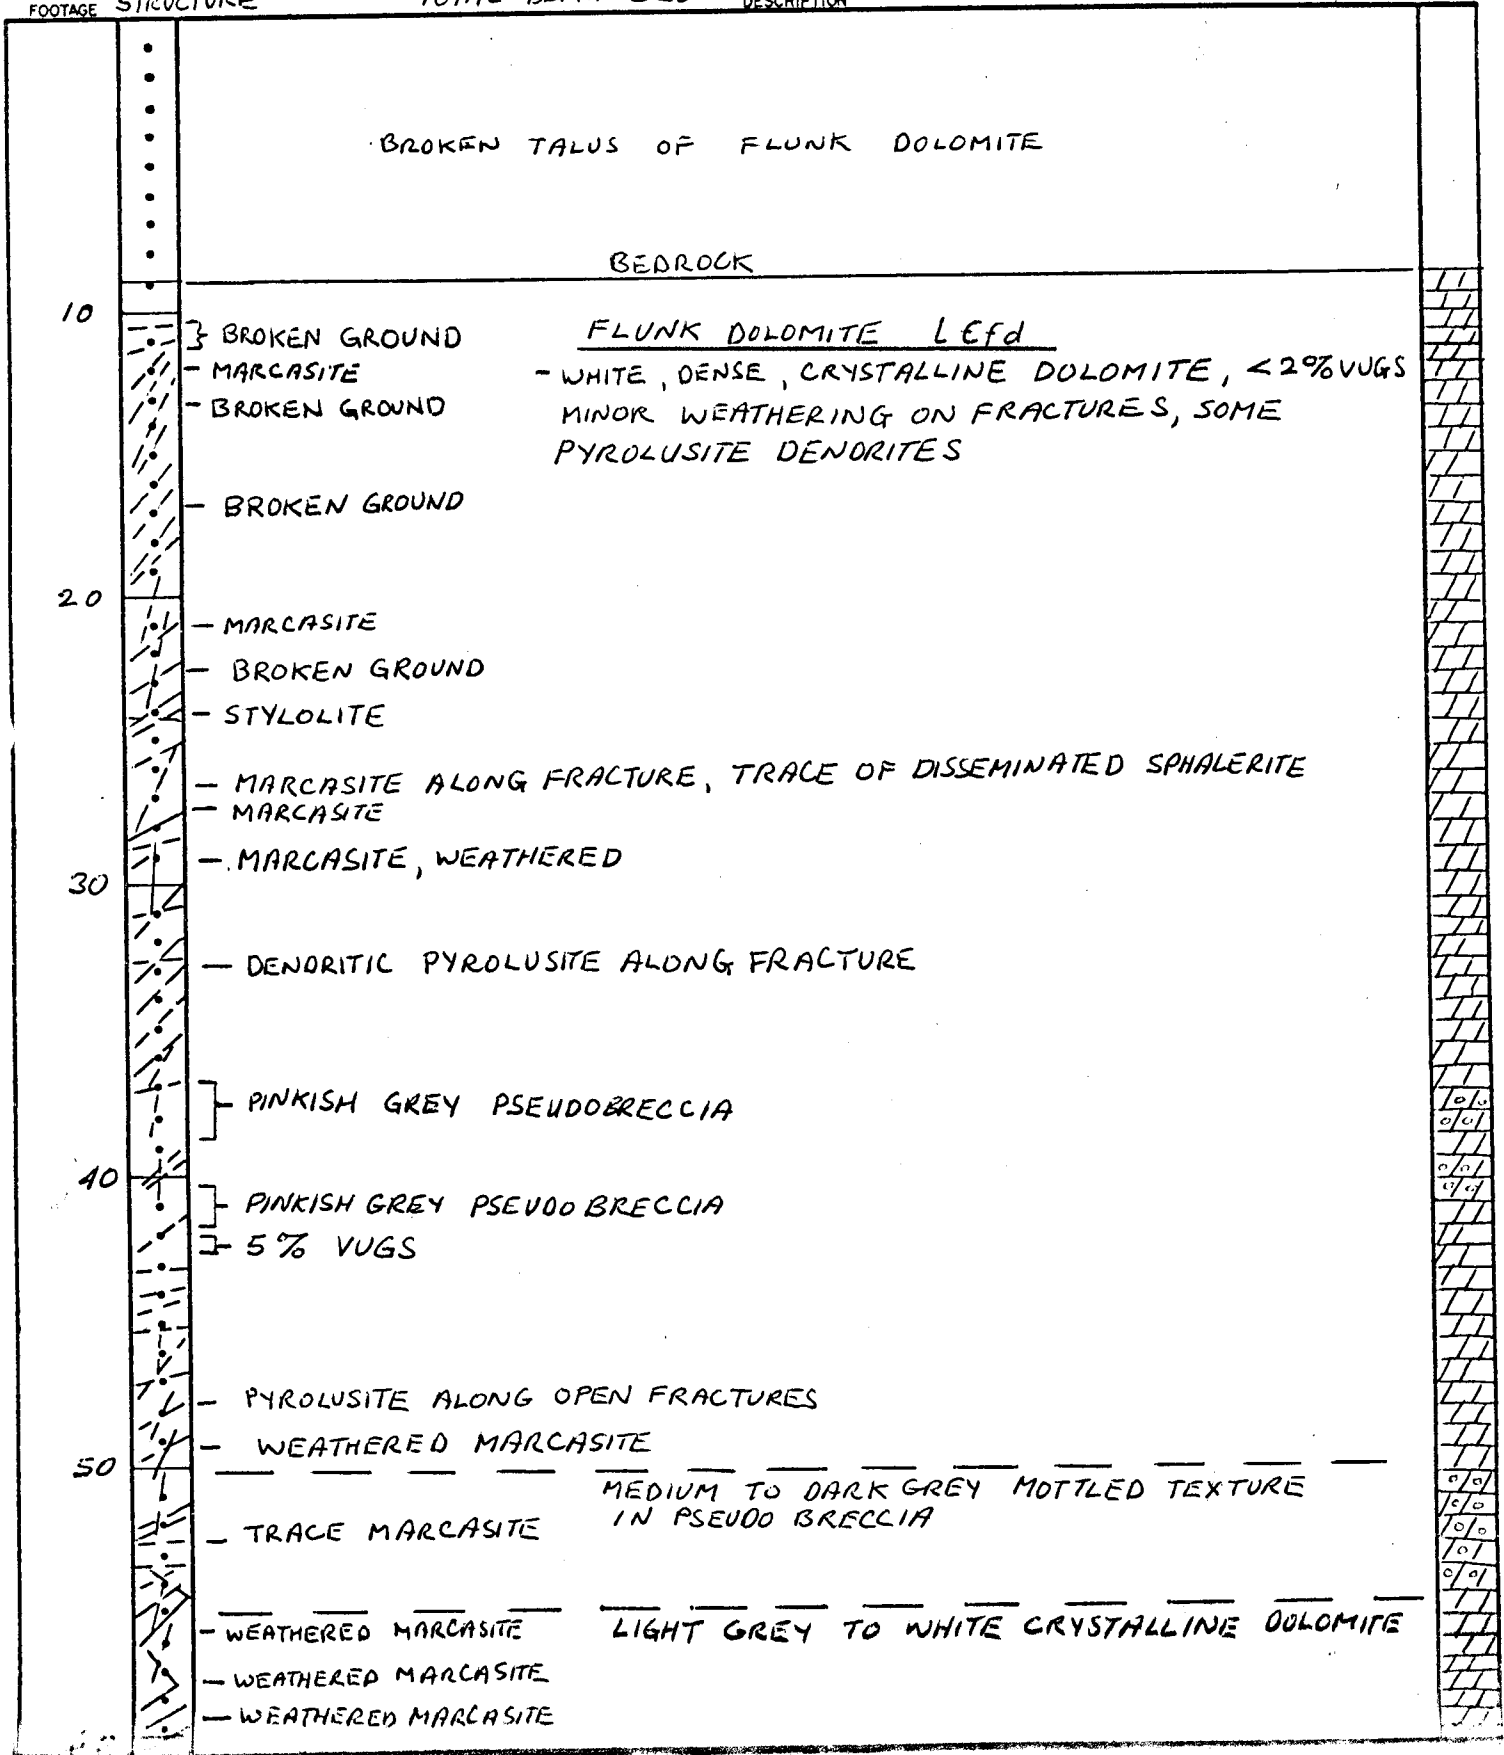 FOOTAGE STRUCTURE DESCRIPTION
BROKEN TALUS OF FLUNK DOLOMITE
BEDROCK
10
BROKEN GROUND FLUNK DOLOMITE LЄfd
- MARCASITE - WHITE, DENSE, CRYSTALLINE DOLOMITE, <2% VUGS
- BROKEN GROUND MINOR WEATHERING ON FRACTURES, SOME
PYROLUSITE DENDRITES
- BROKEN GROUND
20
- MARCASITE
- BROKEN GROUND
- STYLOLITE
- MARCASITE ALONG FRACTURE, TRACE OF DISSEMINATED SPHALERITE
- MARCASITE
- MARCASITE, WEATHERED
30
- DENDRITIC PYROLUSITE ALONG FRACTURE
- PINKISH GREY PSEUDOBRECCIA
40
- PINKISH GREY PSEUDO BRECCIA
- 5% VUGS
- PYROLUSITE ALONG OPEN FRACTURES
- WEATHERED MARCASITE
50
MEDIUM TO DARK GREY MOTTLED TEXTURE
IN PSEUDO BRECCIA
- TRACE MARCASITE
- WEATHERED MARCASITE LIGHT GREY TO WHITE CRYSTALLINE DOLOMITE
- WEATHERED MARCASITE
- WEATHERED MARCASITE